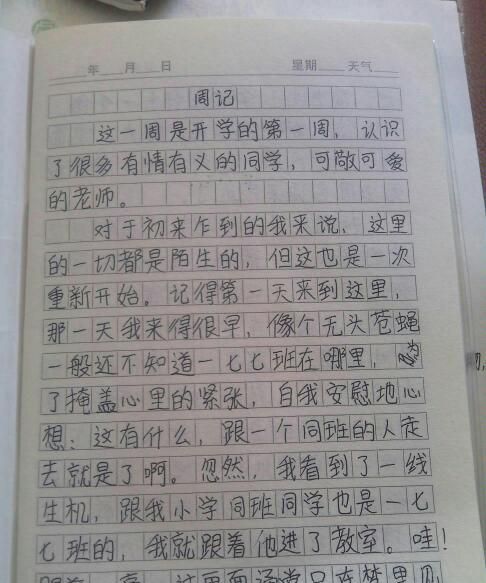 年 月 日 星期 天气
周记
这一周是开学的第一周，认识
了很多有情有义的同学，可敬可爱
的老师。
对于初来乍到的我来说，这里
的一切都是陌生的，但这也是一次
重新开始。记得第一天来到这里，
那一天我来得很早，像个无头苍蝇
一般还不知道一七七班在哪里，为
了掩盖心里的紧张，自我安慰地心
想：这有什么，跟一个同班的人走
去就是了啊。忽然，我看到了一线
生机，跟我小学同班同学也是一七
七班的，我就跟着他进了教室。哇！